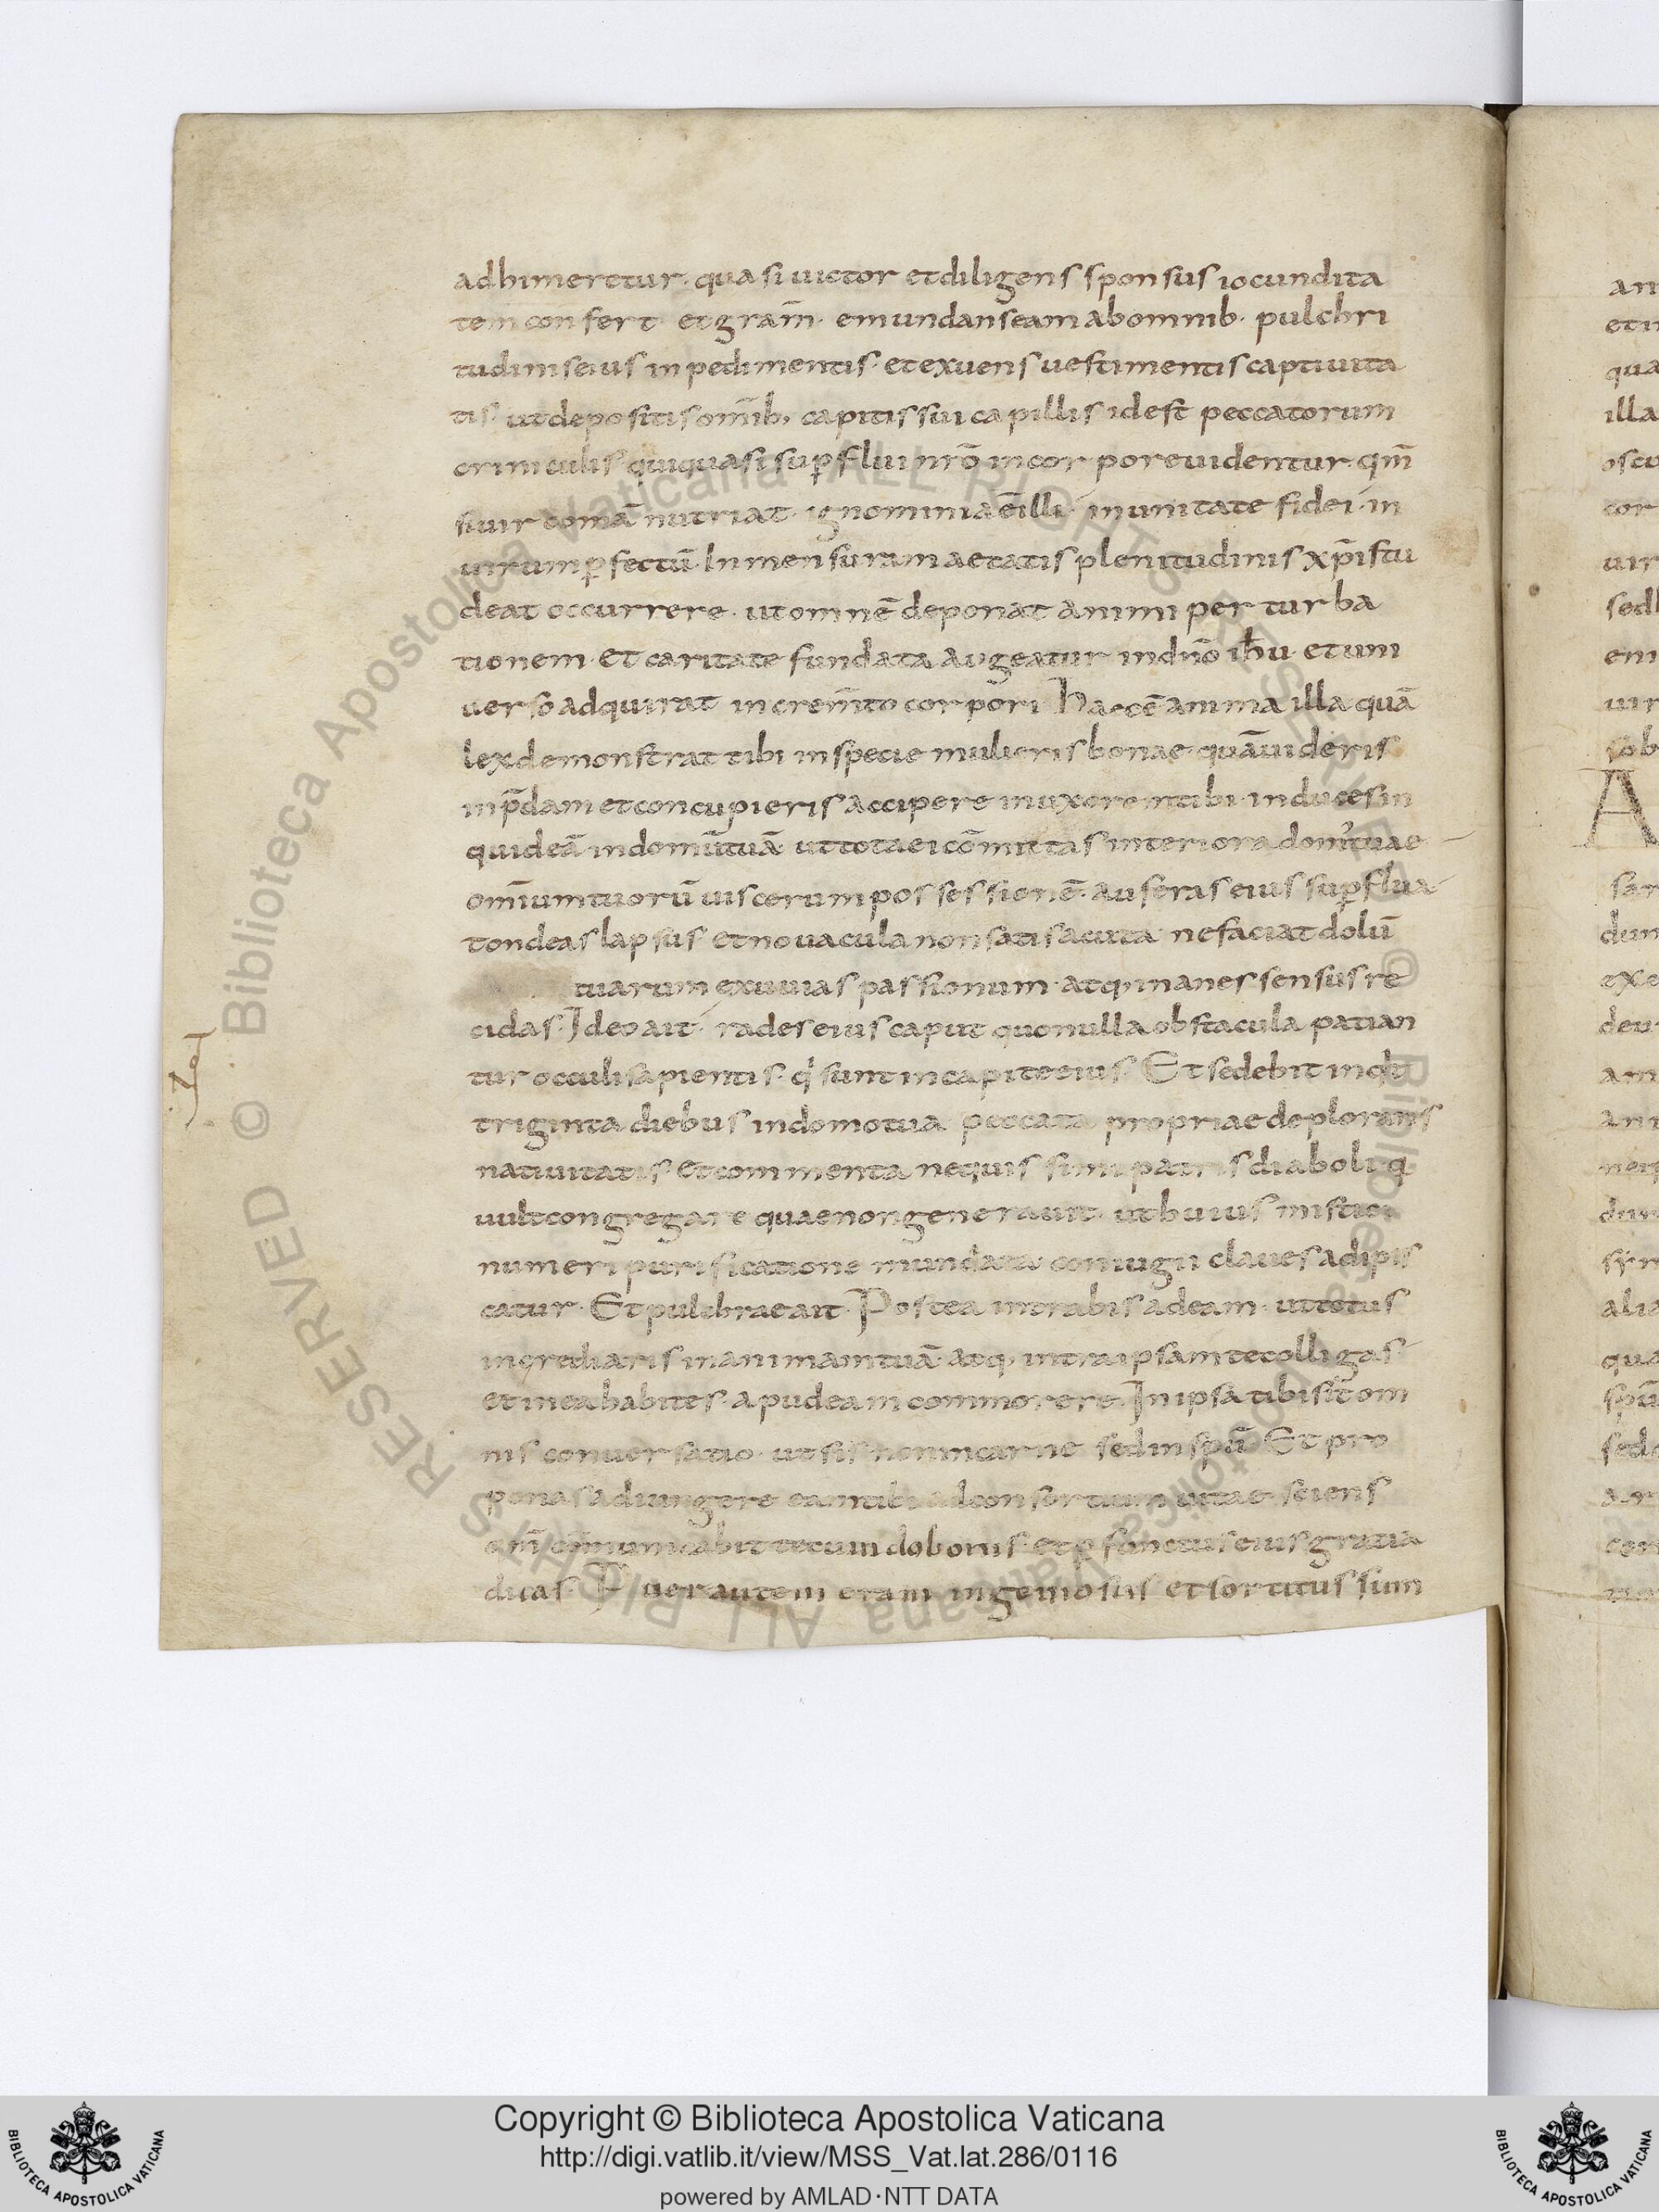 adhimeretur · quasi uictor et diligens sponsus iocundita
tem confert et grām · emundans eam ab omnib · pulchri
tudinis eius inpedimentis · et exuens uestimentis captiuita
tis · ut depositis omīb; capitis sui capillis id est peccatorum
criniculis qui quasi supflui nrō in corpore uidentur · qm̄
si uir comā nutriat · ignominia ē illi · in unitate fidei · in
uirum pfectū · In mensuram aetatis plenitudinis xp̄i stu
deat occurrere · ut omnē deponat animi perturba
tionem · et caritate fundata augeatur in dn̄o ihu · et uni
uerso adquirat increm̄to corpori Haec ē anima illa quā
lex demonstrat tibi in specie mulieris bonae · quā uideris
in p̄dam et concupieris accipere in uxorem tibi · induces in
quid eā in domū tuā · ut tota ei cōmittas interiora dom' tuae
om̄ium tuorū uiscerum possessionē · auferas eius supflua
tondeas lapsus et nouacula non satis acuta ne faciat dolū
tuarum exuuias passionum · atq; inanes sensus re
cidas · Ideo ait · rades eius caput quo nulla obstacula patian
tur occuli sapientis · q' sunt in capite eius · Et sedebit inqt
triginta diebus in domo tua peccata propriae deplorans
natiuitatis et commenta nequissimi patris diaboli q
uult congregare quae non generauit · ut huius mistici
numeri purificatione mundata · coniugii claues adipis
catur · Et pulchrae ait · Postea intrabis ad eam · ut totus
ingrediaris in animam tuā · atq; intra ipsam te colligas ·
et in ea habites · apud eam commorere · In ipsa tibi sit om
nis conuersatio · ut sis non in carne sed in spū Et pro
ponas adiungere eam tibi ad consortium uitae · sciens
qm̄ cōmunicabit tecum do bonis · et p functus eius gratia
dicas · Puer autem eram ingeniosus et sortitus sum
Copyright © Biblioteca Apostolica Vaticana
http://digi.vatlib.it/view/MSS_Vat.lat.286/0116
powered by AMLAD·NTT DATA
BIBLIOTECA APOSTOLICA VATICANA
BIBLIOTECA APOSTOLICA VATICANA